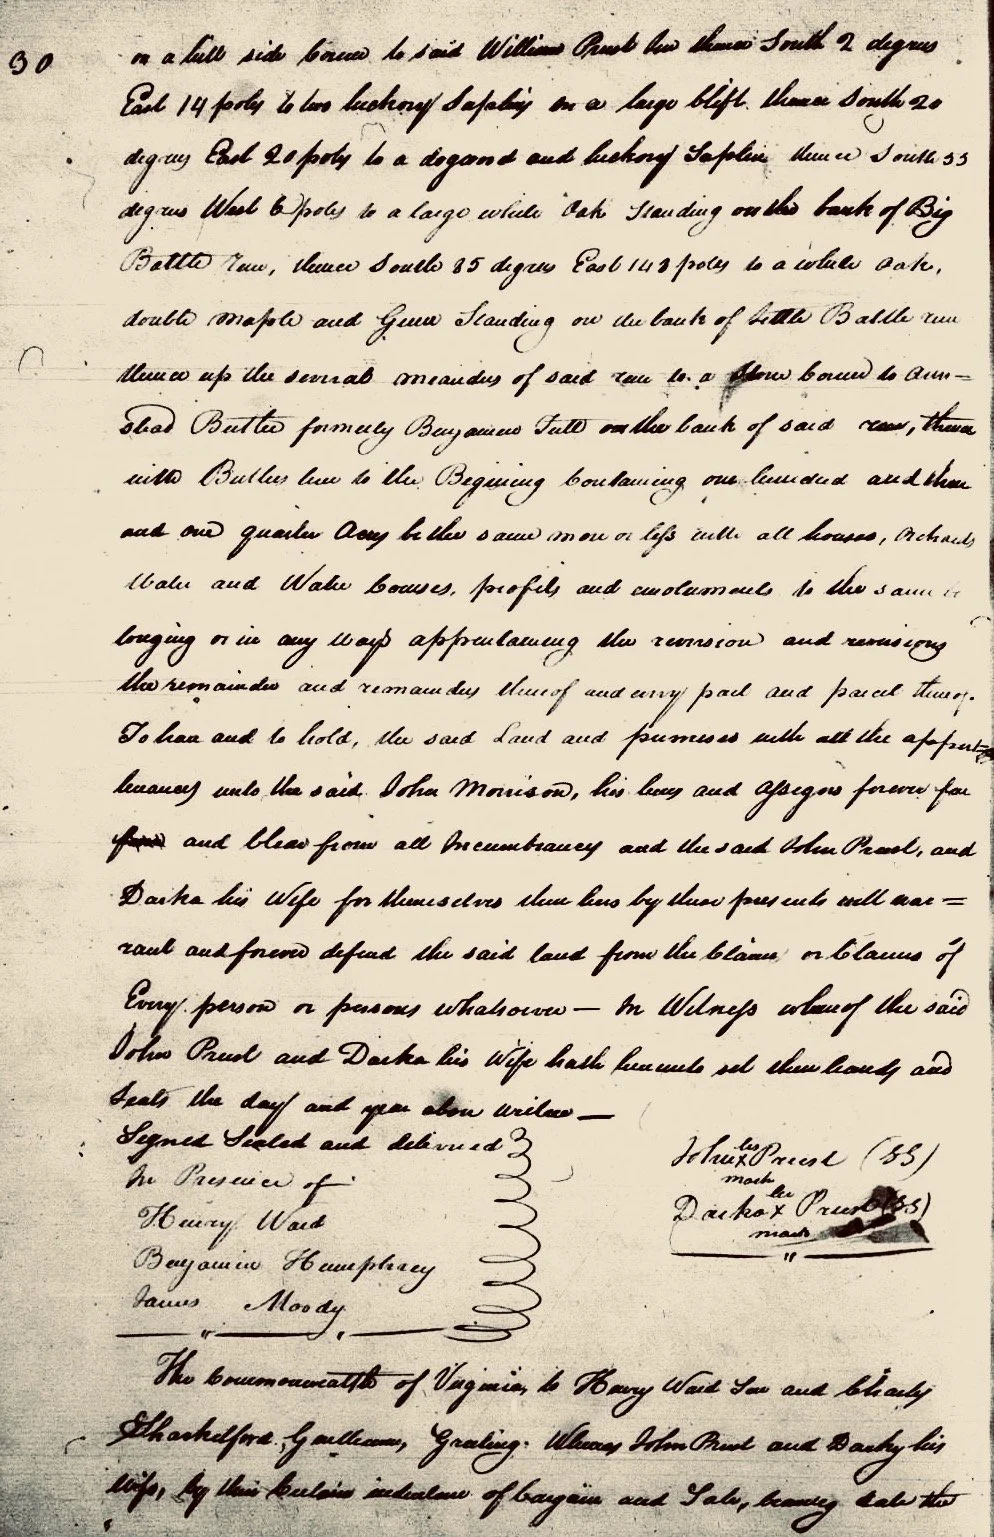 30
on a hill side Corner to said William Priest Jur thence South 2 degrees
East 14 poles to two hickory Saplins on a large clift. thence South 20
degrees East 20 poles to a dogwood and hickory Saplin thence South 55
degrees West 6 poles to a large white Oak Standing on the bank of Big
Battle run, thence South 85 degrees East 148 poles to a white oak,
double maple and Gum Standing on the bank of little Battle run
thence up the several meanders of said run to a Stone Corner to Arm=
stead Butler formerly Benjamin Tutt on the bank of said run, thence
with Butlers line to the Begining Containing one hundred and three
and one quarter Acres be the same more or less with all houses, Orchards
Water and Water Courses, profits and emoluments to the same be
longing or in any ways appertaining the reversion and reversions
the remainder and remainders thereof and every part and parcel thereof.
To have and to hold, the said Land and premises with all the appert=
tenances unto the said John Morrison, his heirs and Assigns forever free
and Clear from all Incumbrances and the said John Priest, and
Darka his Wife for themselves their heirs by these presents will war=
rant and forever defend the said land from the Claim or Claims of
Every person or persons whatsoever — In Witness whereof the said
John Priest and Darka his Wife hath hereunto set their hands and
Seals the day and year above written —
Signed Sealed and delivered
In Presence of
Henry Ward
Benjamin Humphrey
James Moody
his
John x Priest (SS)
mark
her
Darka x Priest (SS)
mark
The Commonwealth of Virginia, to Henry Ward Jur and Charles
Shackelford, Gentlemen, Greeting. Whereas John Priest and Darky his
Wife, by their Certain indenture of bargain and Sale, bearing date the